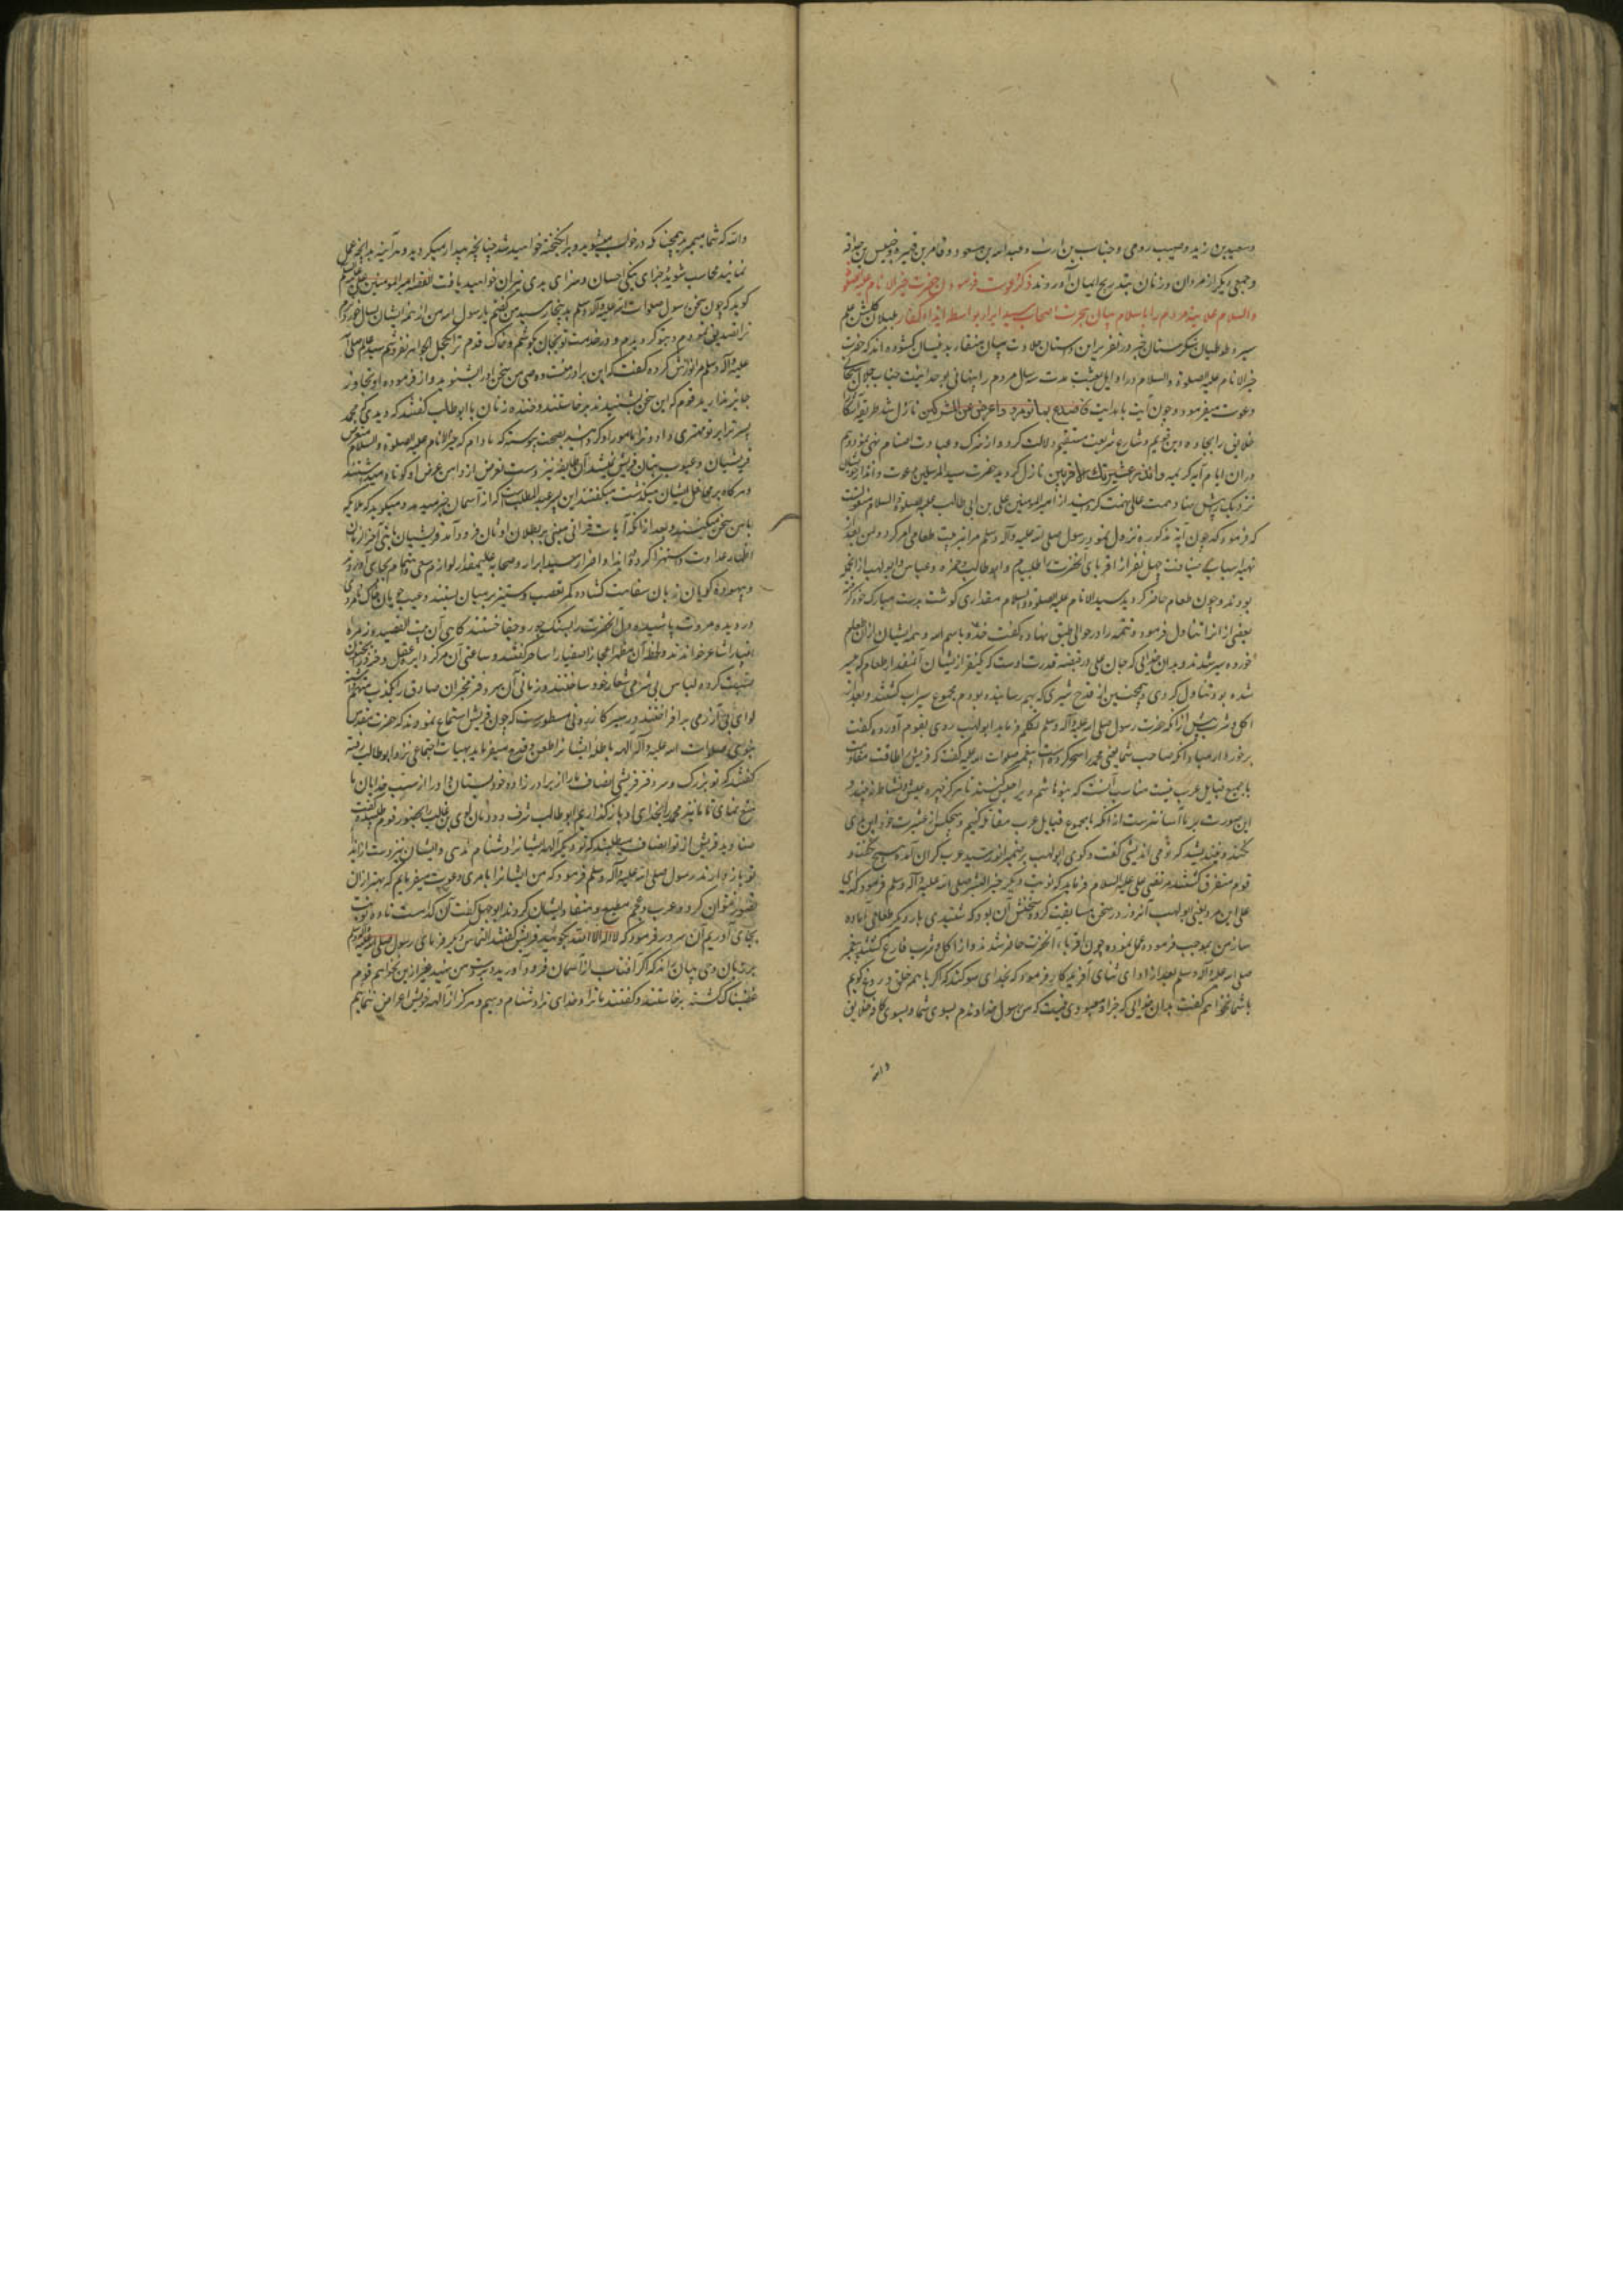 وسعید بن زید وصهیب رومی وخباب بن ارث وعبدالله بن مسعود وعامر بن فهیره وخنیس بن حذافه
وجمعی دیگر از مردان وزنان بتدریج ایمان آوردند ذکر دعوت فرمودن حضرت خیر الانام علیه الصلوة
والسلام علانیه مردم را باسلام وبیان هجرت اصحاب سید ابرار بواسطه ایذاء کفار بلبلان گلشن علم
سیر وطوطیان شکرستان خبر در تقریر این داستان حلاوت بیان منقار بدینسان گشوده اند که حضرت
خیر الانام علیه الصلوة والسلام در اوایل بعثت مدت سه سال مردم را پنهانی بوحدانیت جناب جلال سبحانی
دعوت میفرمود وچون آیت باهدایت فاصدع بما تؤمر واعرض عن المشرکین نازل شد بطریقه آشکارا
خلایق را بجاده دین قویم وشارع شریعت مستقیم دلالت کرد واز شرک وعبادت اصنام نهی نمود وهم
دران ایام آیه کریمه وانذر عشیرتک الاقربین نازل گردید حضرت سید المرسلین بدعوت وانذار خویشان
نزدیک پیش نهاد همت عالی نهمت گردانید از امیر المؤمنین علی بن ابی طالب علیه الصلوة والسلام منقولست
که فرمود که چون آیه مذکوره نزول نمود رسول صلی الله علیه وآله وسلم مرا بترتیب طعامی امر کرد ومن بعد از
تهیه اسباب ضیافت چهل نفر از اقربای آنحضرت را طلبیدم وابوطالب وحمزه وعباس وابولهب از آنجمله
بودند وچون طعام حاضر گردید سید الانام علیه الصلوة والسلام مقداری گوشت بدست مبارک خود گرفته
بعضی از انرا تناول فرمود وتتمه را در حوالی طبق نهاده گفت خذوا باسم الله وهمه ایشان از آن طعم
خورده سیر شدند وبدان خدایی که جان علی در قبضه قدرت اوست که یکنفر از یشان آنمقدار طعام که سیر
شده بود تناول کردی وهمچنین از قدح شیری که بهم رسانیده بودم مجموع سیراب گشتند وبعد از
اکل وشرب پیش از انکه حضرت رسول صلی الله علیه وآله وسلم تکلم فرماید ابولهب روی بقوم آورده گفت
برخوردار مباد انکه صاحب شما یعنی محمد را سحر کرده است پیغمبر صلوات الله علیه گفت که قریش را طاقت مقاومت
با جمیع قبایل عرب نیست مناسب آنست که بنو هاشم ویرا حبس کنند تا هرگز چهره عیش ونشاط نبیند و
این صورت بر ما آسانترست از انکه با مجموع قبایل عرب مقاتله کنیم وهیچکس از عشیرت خود این بدی
نکند نیندیشد که تو می اندیشی گفت وگوی ابولهب بر ضمیر انور سید عرب گران آمده هیچ نگفت و
قوم متفرق گشتند مرتضی علی علیه السلام فرماید که نوبت دیگر خیر البشر صلی الله علیه وآله وسلم فرمود که ای
علی این مرد یعنی ابولهب آنروز در سخن مسابقت کرد وسخنش آن بود که شنیدی بار دیگر طعامی آماده
ساز من بموجب فرموده عمل نموده چون اقرباء آنحضرت حاضر شدند واز اکل وشرب فارغ گشتند پیغمبر
صلی الله علیه وآله وسلم بعد از ادای ثنای آفریدگار فرمود که بخدای سوگند که اگر با همه خلق دروغ گویم
با شما نخواهم گفت بدان خدایی که جز او معبودی نیست که من رسول خداوندم بسوی شما وبسوی کافه خلایق
والله
والله که شما میمیرید همچنانکه در خواب میشوید وبرانگیخته خواهید شد چنانچه بیدار میگردید وهرآینه بدانچه عمل
نمائید محاسب شوید جزای نیکی احسان وسزای بدی نیران خواهید یافت القصه امیر المؤمنین علی علیه السلام
گوید که چون سخن رسول صلوات الله علیه وآله وسلم بدینجا رسید من گفتم یا رسول الله من از همه ایشان بسال خوردترم
ترا تصدیق نمودم وبتو گرویدم ودر خدمت تو بجان کوشم وخاک قدم ترا بکحل الجواهر نفروشم سید عالم صلی الله
علیه وآله وسلم مرا نوازش کرده گفت که این برادر منست ووصی من سخن اورا بشنوید واز فرموده او تجاوز
جایز مدارید قوم که این سخن بشنیدند برخاستند وخنده زنان با ابوطالب گفتند که دیدی که محمد
پسر ترا بر تو مهتری داد وترا مامور او گردانید بصحت پیوسته که مادام که خیر الانام علیه الصلوة والسلام متعرض
قریشیان وعیوب بتان قریش نمیشد آن طایفه نیز دست تعرض از دامن عرض او کوتاه میداشتند
وهر گاه بر محافل ایشان میگذشت میگفتند این پسر عبدالمطلبست که از آسمان خبر میدهد ومیگوید که ملایکه
با من سخن میکنند وبعد از انکه آیات قرآنی مبنی بر بطلان اوثان فرود آمد قریشیان با نبی آخر الزمان
اظهار عداوت واستهزا کرده در ایذا واضرار سید ابرار وصحابه علیمقدار لوازم سعی واهتمام بجای آوردند
وبیهوده گویان زبان سفاهت گشاده کمر تعصب وستیز بر میان بستند وعیب جویان خاک نامردی
در دیده مروت پاشیده دل آنحضرت را بسنگ جور وجفا خستند گاهی آن بیت القصیده زمره
انبیا را شاعر خواندند ولحظه آن مظهر اعجاز اصفیا را ساحر گفتند وساعتی آن مرکز دایره عقل وخرد را بجنون
نسبت کرده لباس بی شرمی شعار خود ساختند وزمانی آن سردفتر مخبران صادق را بکذب متهم داشته
لوای بی آزرمی برافراختند در سیر کازرونی مسطورست که چون قریش استماع نمودند که حضرت مقدس
نبوی صلوات الله علیه وآله آلهه باطله ایشانرا طعن وقدح میفرماید بهیات اجتماعی نزد ابوطالب رفته
گفتند که تو بزرگ وسردفتر قریشی انصاف ما را از برادر زاده خود بستان واورا از سب خدایان ما
منع نمای تا ما نیز محمد را بخدای او بازگذاریم ابوطالب شرف دودمان لوی بن غالب را بحضور قوم طلبیده گفت
صنادید قریش از تو انصاف میطلبند که تو دیگر آلهه ایشانرا دشنام ندهی وایشان نیز دست از ایذاء
تو باز دارند رسول صلی الله علیه وآله وسلم فرمود که من ایشانرا بامری دعوت میفرمایم که بهتر از ان
تصور نتوان کرد وعرب وعجم مطیع ومنقاد ایشان گردند ابوجهل گفت آن کدامست تا ده نوبت
بجای آوریم آن سرور فرمود که لا اله الا الله بگوئید قریش گفتند التماس دیگر فرمای رسول صلی الله علیه وآله وسلم
بر زبان وحی بیان راند که اگر آفتاب از آسمان فرود آورید وبدست من نهید غیر ازین نخواهم قوم
غضبناک گشته برخاستند وگفتند ما ترا وخدای ترا دشنام دهیم وهرگز از آلهه خویش اعراض ننمائیم